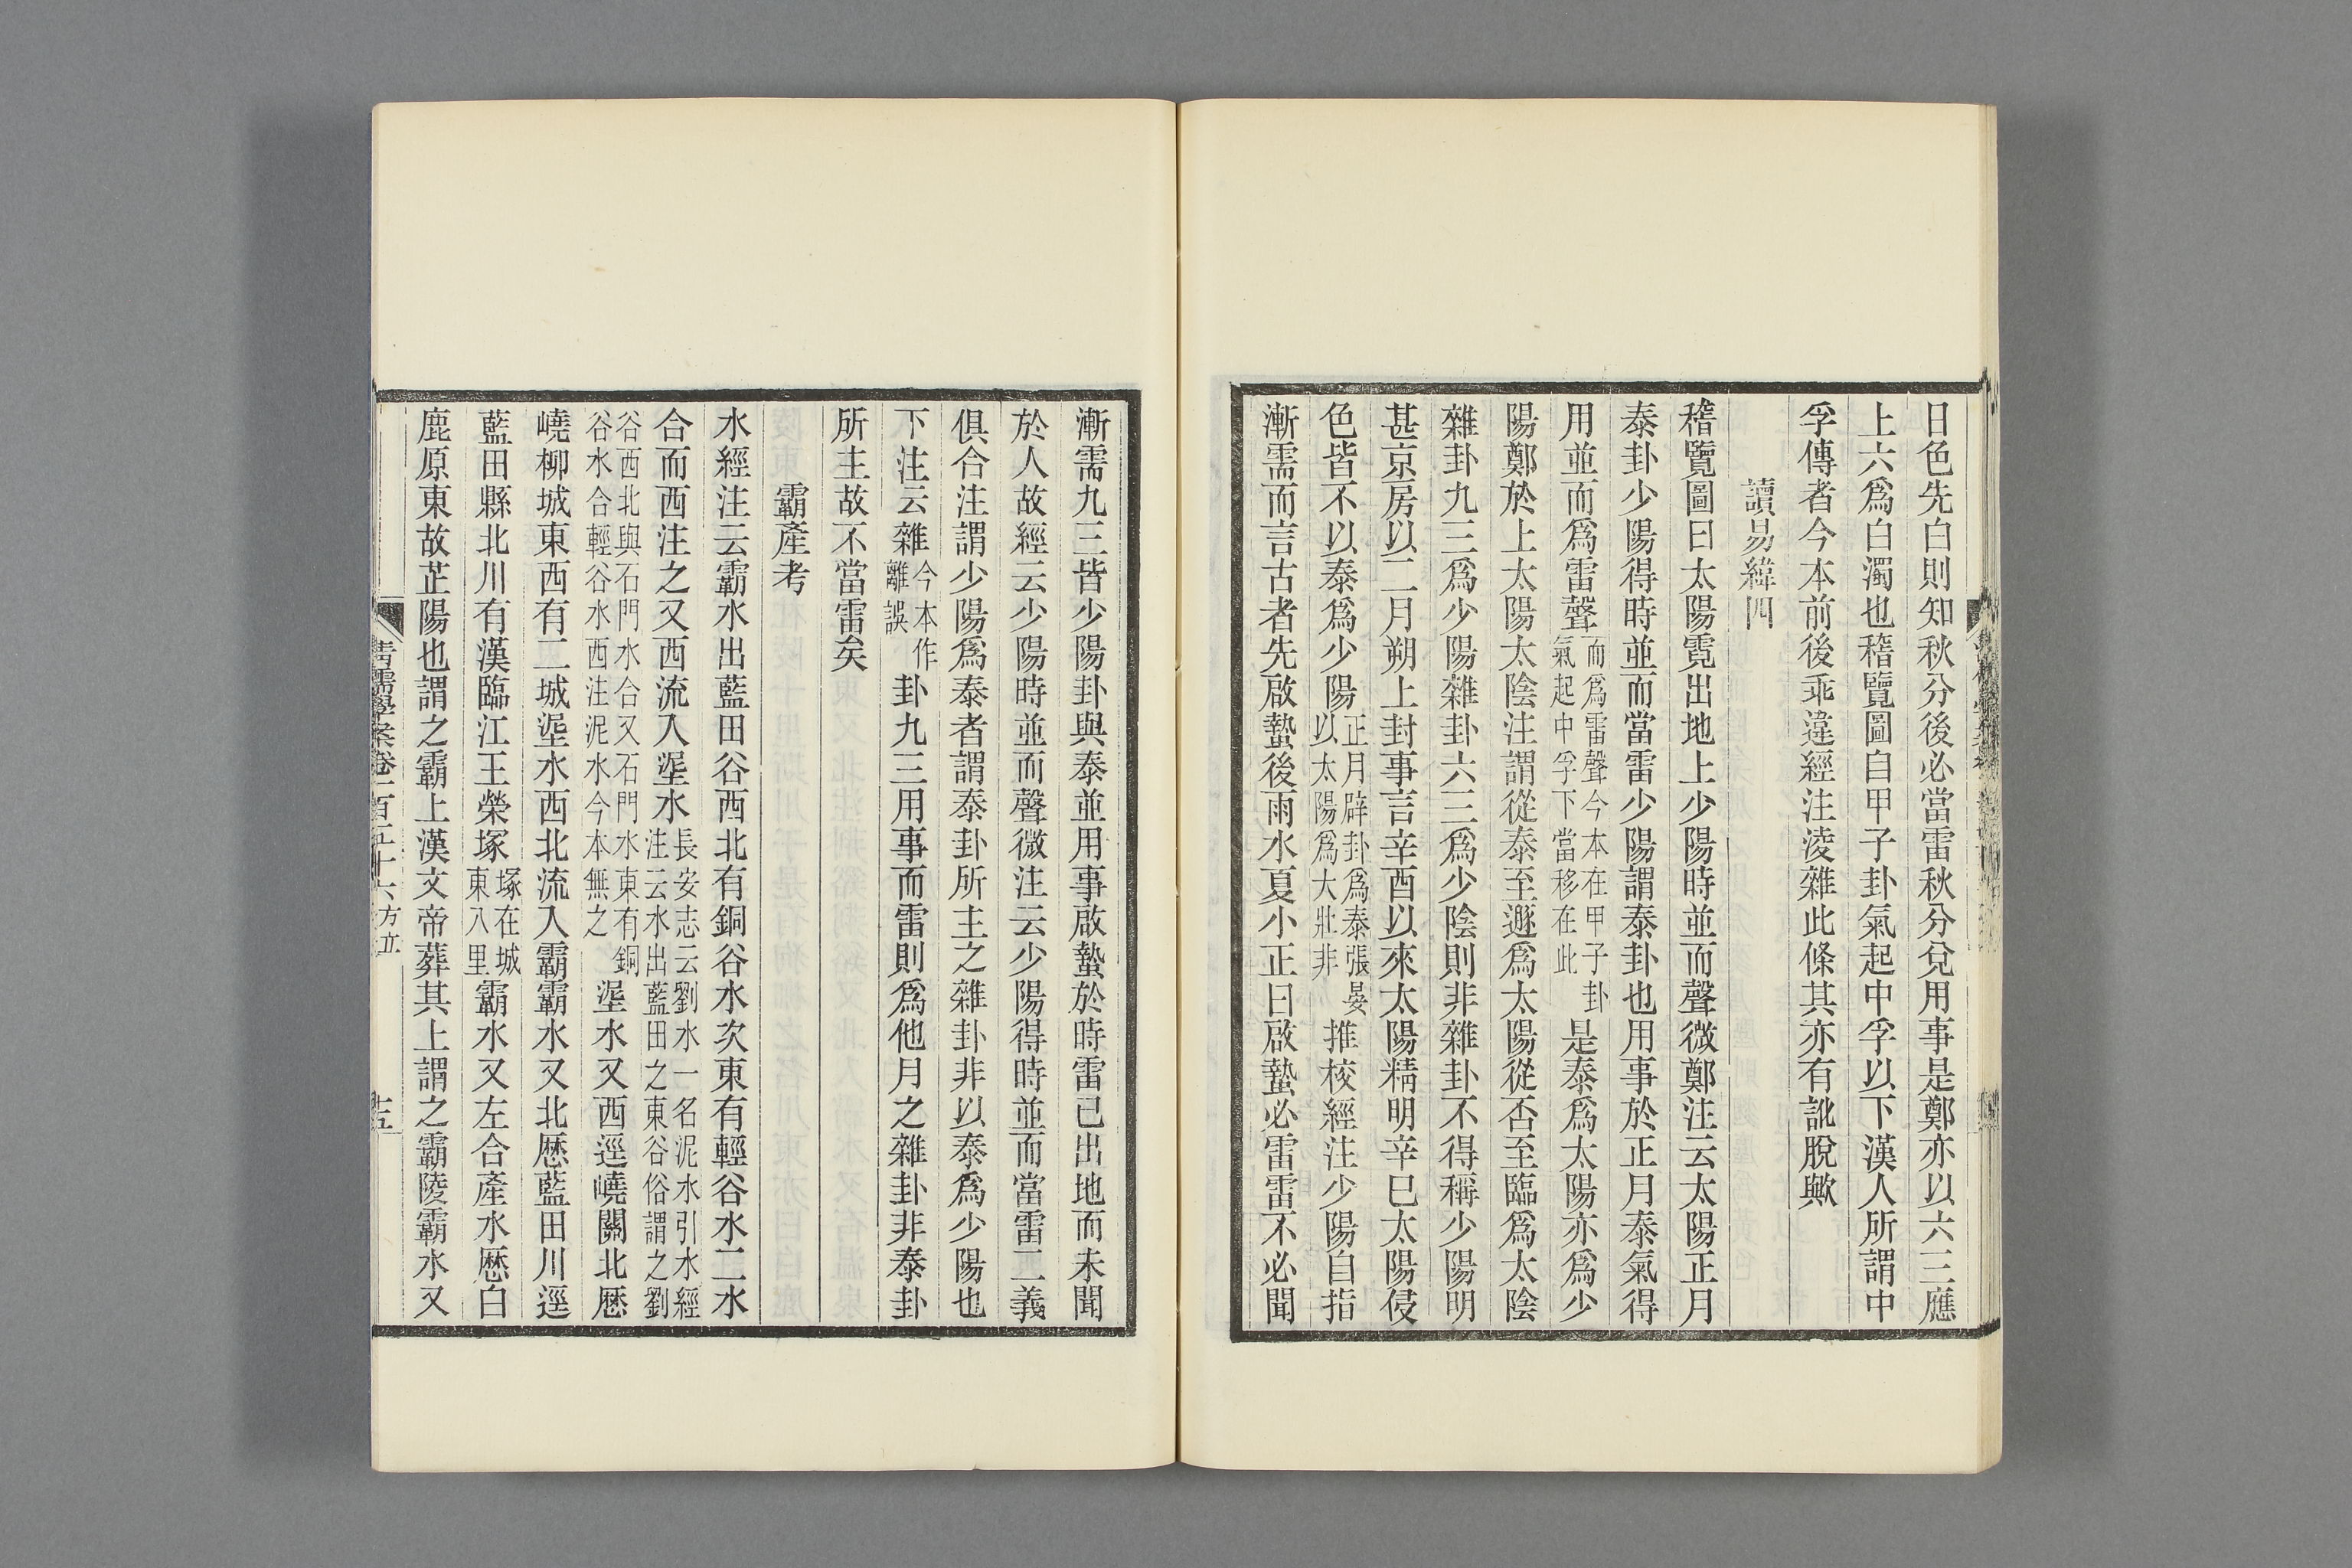 日色先白則知秋分後必當雷秋分兌用事是鄭亦以六三應
上六爲白濁也稽覽圖自甲子卦氣起中孚以下漢人所謂中
孚傳者今本前後乖違經注淩雜此條其亦有訛脫歟
讀易緯四
稽覽圖曰太陽霓出地上少陽時並而聲微鄭注云太陽正月
泰卦少陽得時並而當雷少陽謂泰卦也用事於正月泰氣得
用並而爲雷聲而爲雷聲今本在甲子卦氣起中孚下當移在此是泰爲太陽亦爲少
陽鄭於上太陽太陰注謂從泰至遯爲太陽從否至臨爲太陰
雜卦九三爲少陽雜卦六三爲少陰則非雜卦不得稱少陽明
甚京房以二月朔上封事言辛酉以來太陽精明辛巳太陽侵
色皆不以泰爲少陽正月辟卦爲泰張晏以太陽爲大壯非推校經注少陽自指
漸需而言古者先啟蟄後雨水夏小正曰啟蟄必雷雷不必聞
漸需九三皆少陽卦與泰並用事啟蟄於時雷已出地而未聞
於人故經云少陽時並而聲微注云少陽得時並而當雷二義
俱合注謂少陽爲泰者謂泰卦所主之雜卦非以泰爲少陽也
下注云雜今本作離誤卦九三用事而雷則爲他月之雜卦非泰卦
所主故不當雷矣
霸產考
水經注云霸水出藍田谷西北有銅谷水次東有輕谷水二水
合而西注之又西流入埿水長安志云劉水一名泥水引水經注云水出藍田之東谷俗謂之劉
谷西北與石門水合又石門水東有銅谷水合輕谷水西注泥水今本無之埿水又西逕嶢關北歷
嶢柳城東西有二城埿水西北流入霸霸水又北歷藍田川逕
藍田縣北川有漢臨江王榮塚塚在城東八里霸水又左合產水歷白
鹿原東故芷陽也謂之霸上漢文帝葬其上謂之霸陵霸水又
清儒學案卷一百五十六 方立
十五